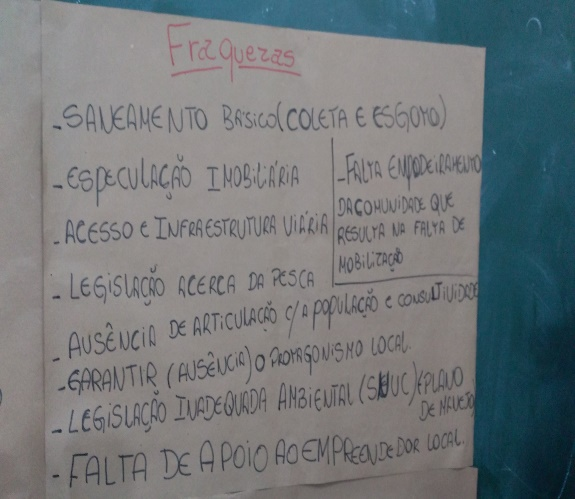 Fraquezas
- SANEAMENTO BÁSICO (COLETA E ESGOTO)
- ESPECULAÇÃO IMOBILIÁRIA
- ACESSO E INFRAESTRUTURA VIÁRIA
- FALTA EMPODEIRAMENTO
DA COMUNIDADE QUE
RESULTA NA FALTA DE
MOBILIZAÇÃO
- LEGISLAÇÃO ACERCA DA PESCA
- AUSÊNCIA DE ARTICULAÇÃO C/ A POPULAÇÃO E CONSULTIVIDADE
- GARANTIR (AUSÊNCIA) O PROTAGONISMO LOCAL.
- LEGISLAÇÃO INADEQUADA AMBIENTAL (SNUC) E PLANO
DE MANEJO
- FALTA DE APOIO AO EMPREENDEDOR LOCAL.